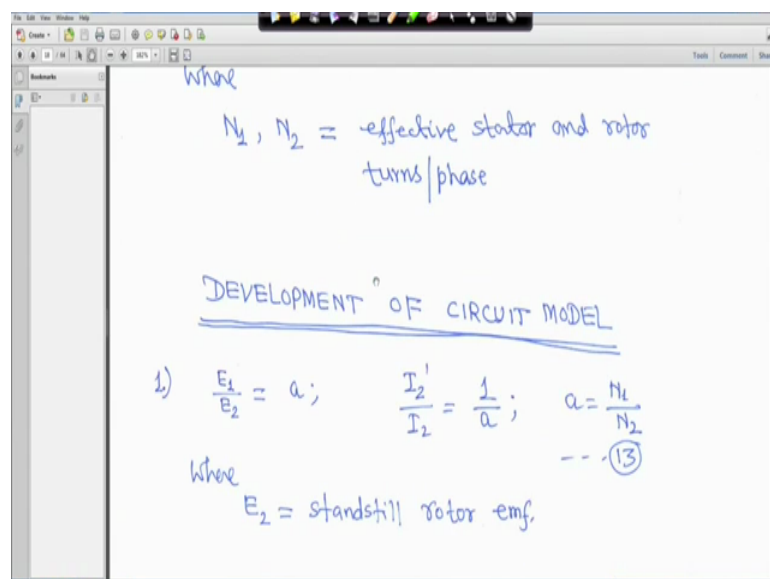 File Edit View Window Help
Create
18 / 44
182%
Tools Comment
Bookmarks
Where
N1, N2 = effective stator and rotor
turns/phase
DEVELOPMENT OF CIRCUIT MODEL
1) E1/E2 = a; I2'/I2 = 1/a; a = N1/N2
--- (13)
Where
E2 = standstill rotor emf.